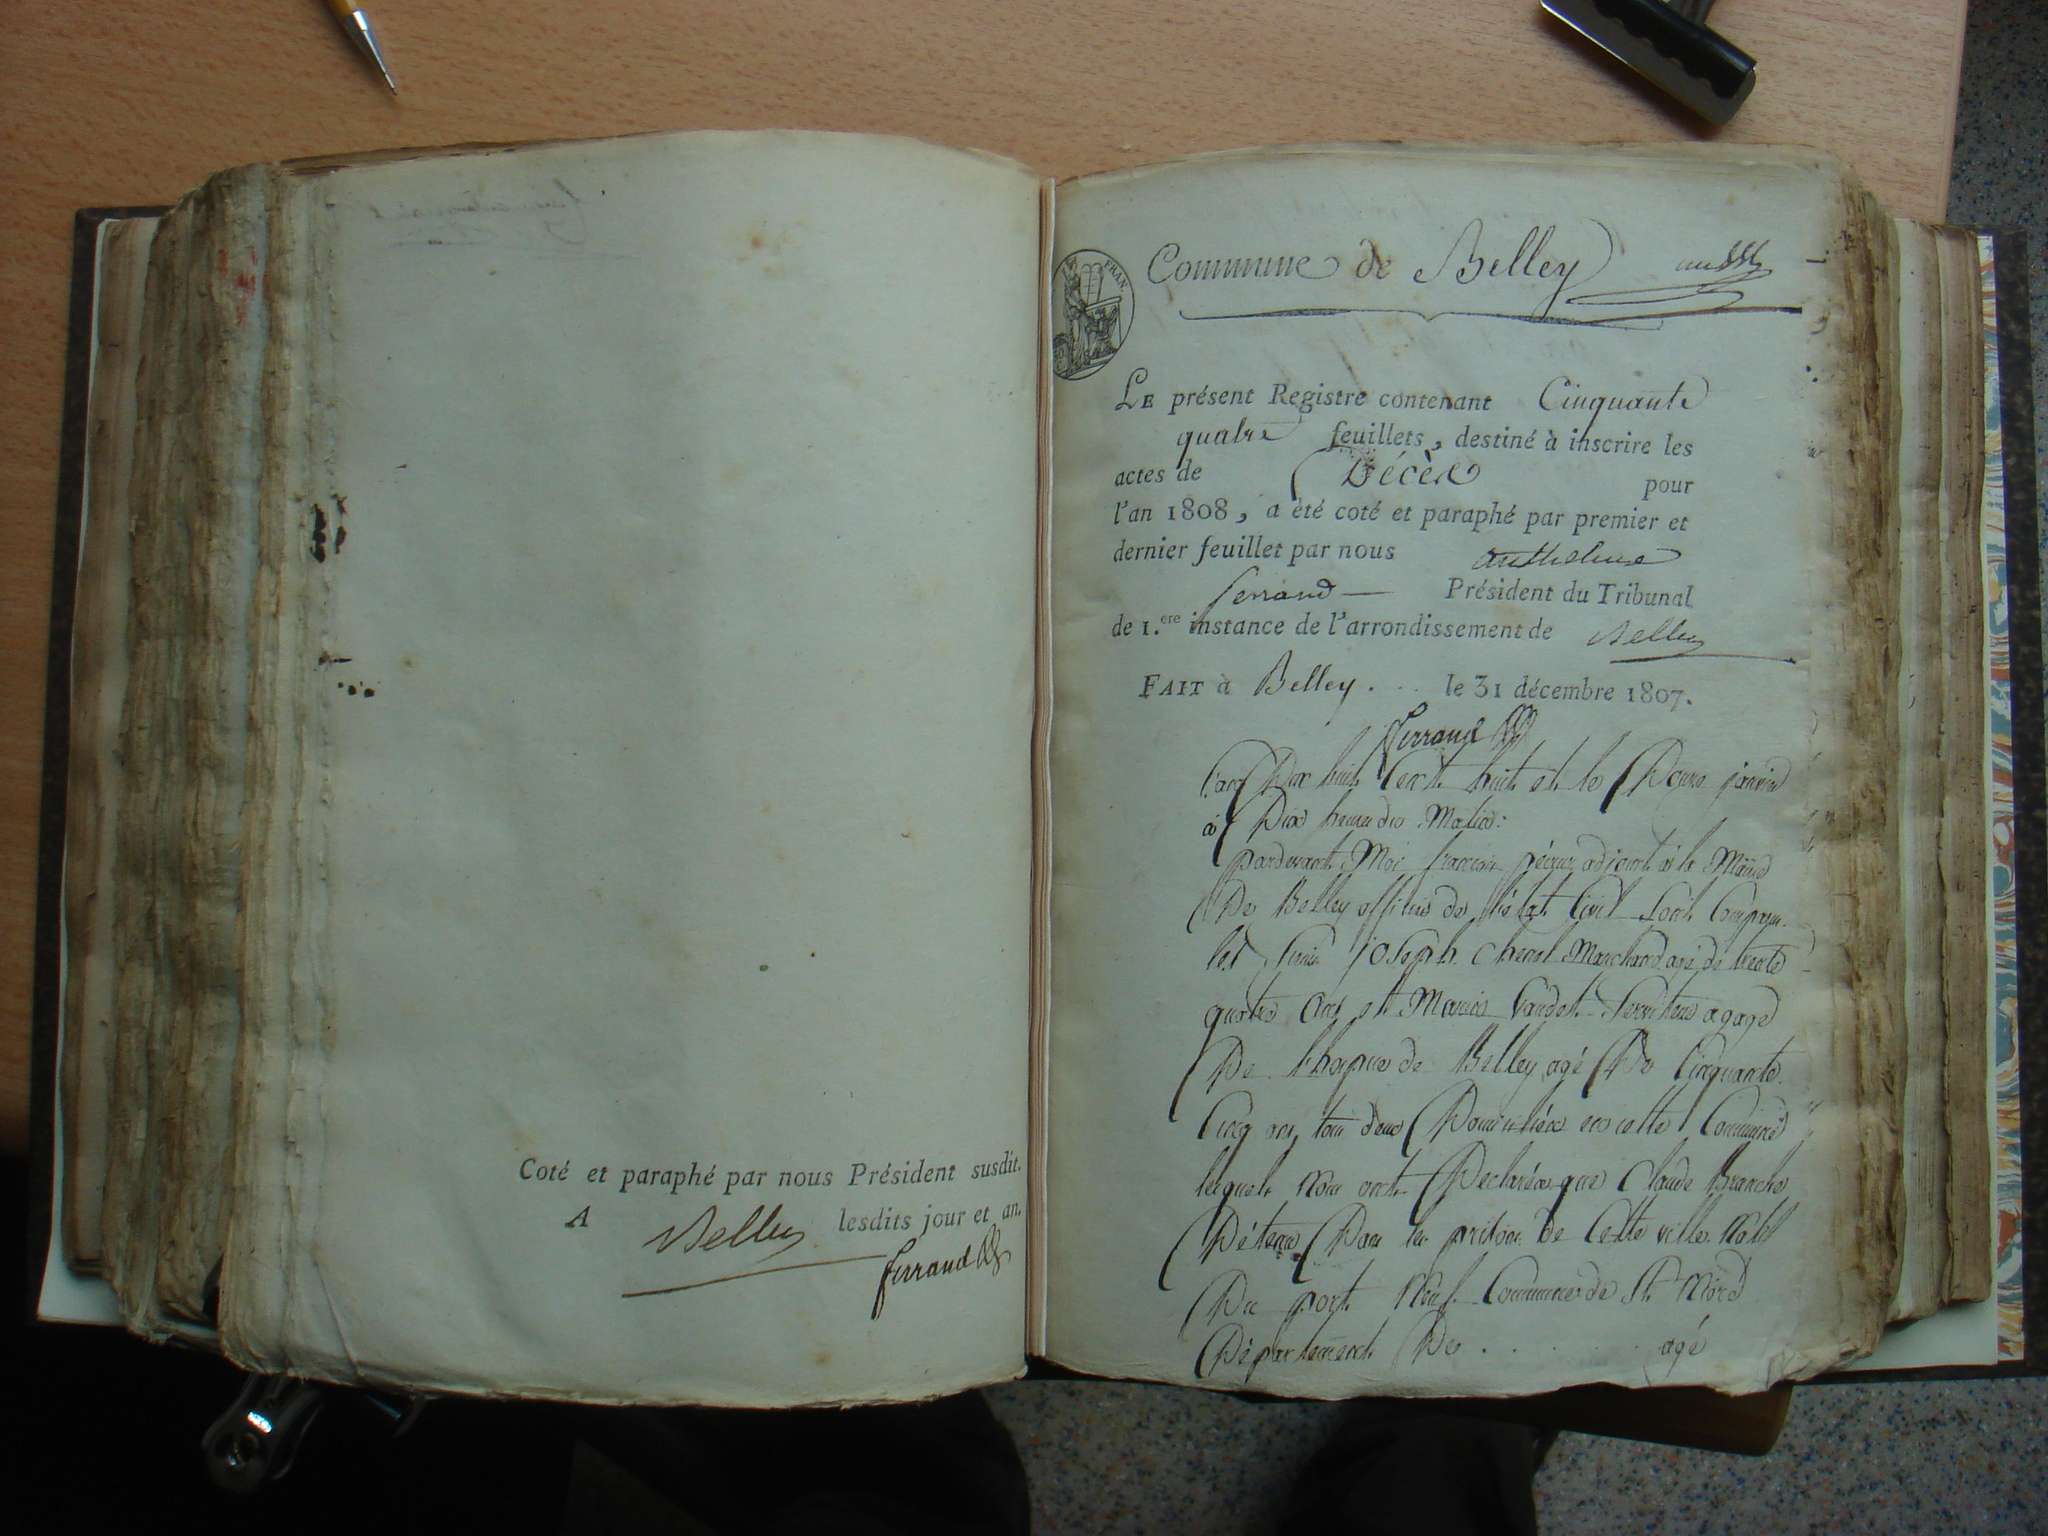 Coté et paraphé par nous Président susdit.
A Belley lesdits jour et an.
ferrand
FRAN.
Commune de Belley
Le présent Registre contenant Cinquante
quatre feuillets, destiné à inscrire les
actes de Décès pour
l'an 1808, a été coté et paraphé par premier et
dernier feuillet par nous anthelme
ferrand — Président du Tribunal
de 1.ere instance de l'arrondissement de Belley
FAIT à Belley . . . le 31 décembre 1807.
ferrand
L'an Dix huit Cent huit et le Douze janvier
à Dix heures du Matin:
pardevant Moi françois adjoint à la Mairie
De Belley officier de l'état Civil Sont Comparu
les Sieurs joseph Chenel Marchand agé de trente
quatre ans et Marie Vaudet Servitene a gage
De l'hopice de Belley agé De Cinquante
Cinq ans tous deux Domiciliées en cette Commune
lesquels Nous ont Declarées que Claude Branche
Détenue Dans les prisons de Cette ville Natif
Du port Neuf Commune de St.
Département De . . . . . . agé